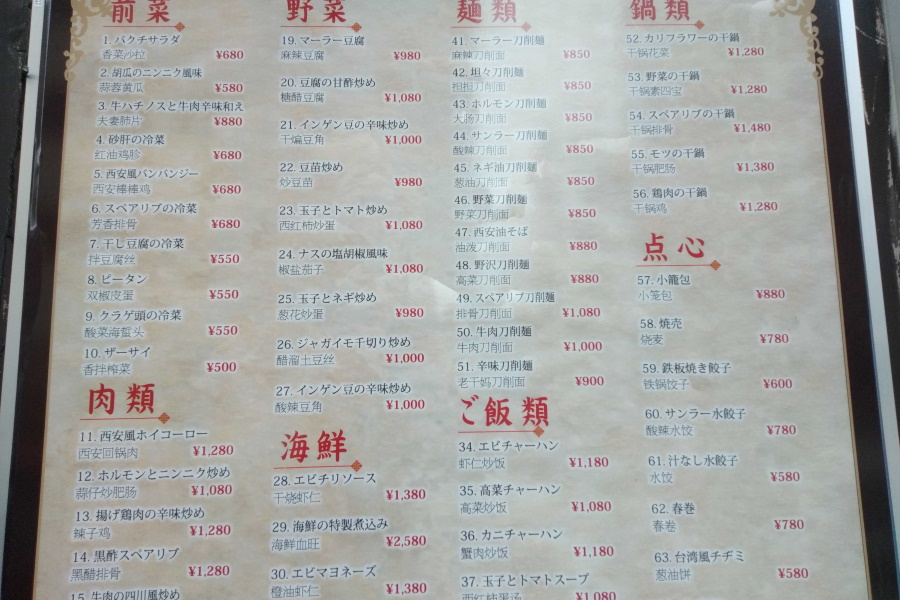 前菜
1. パクチサラダ
香菜沙拉 ¥680
2. 胡瓜のニンニク風味
蒜蓉黄瓜 ¥580
3. 牛ハチノスと牛肉辛味和え
夫妻肺片 ¥880
4. 砂肝の冷菜
红油鸡胗 ¥680
5. 西安風バンバンジー
西安棒棒鸡 ¥680
6. スペアリブの冷菜
芳香排骨 ¥680
7. 干し豆腐の冷菜
拌豆腐丝 ¥550
8. ピータン
双椒皮蛋 ¥550
9. クラゲ頭の冷菜
酸菜海蜇头 ¥550
10. ザーサイ
香拌榨菜 ¥500
肉類
11. 西安風ホイコーロー
西安回锅肉 ¥1,280
12. ホルモンとニンニク炒め
蒜仔炒肥肠 ¥1,080
13. 揚げ鶏肉の辛味炒め
辣子鸡 ¥1,280
14. 黒酢スペアリブ
黑醋排骨 ¥1,280
15. 牛肉の四川風炒め
野菜
19. マーラー豆腐
麻辣豆腐 ¥980
20. 豆腐の甘酢炒め
糖醋豆腐 ¥1,080
21. インゲン豆の辛味炒め
干煸豆角 ¥1,000
22. 豆苗炒め
炒豆苗 ¥980
23. 玉子とトマト炒め
西红柿炒蛋 ¥1,080
24. ナスの塩胡椒風味
椒盐茄子 ¥1,080
25. 玉子とネギ炒め
葱花炒蛋 ¥980
26. ジャガイモ千切り炒め
醋溜土豆丝 ¥1,000
27. インゲン豆の辛味炒め
酸辣豆角 ¥1,000
海鮮
28. エビチリソース
干烧虾仁 ¥1,380
29. 海鮮の特製煮込み
海鲜血旺 ¥2,580
30. エビマヨネーズ
橙油虾仁 ¥1,380
麺類
41. マーラー刀削麺
麻辣刀削面 ¥850
42. 坦々刀削麺
担担刀削面 ¥850
43. ホルモン刀削麺
大肠刀削面 ¥850
44. サンラー刀削麺
酸辣刀削面 ¥850
45. ネギ油刀削麺
葱油刀削面 ¥850
46. 野菜刀削麺
野菜刀削面 ¥850
47. 西安油そば
油泼刀削面 ¥880
48. 野沢刀削麺
高菜刀削面 ¥880
49. スペアリブ刀削麺
排骨刀削面 ¥1,080
50. 牛肉刀削麺
牛肉刀削面 ¥1,000
51. 辛味刀削麺
老干妈刀削面 ¥900
ご飯類
34. エビチャーハン
虾仁炒饭 ¥1,180
35. 高菜チャーハン
高菜炒饭 ¥1,080
36. カニチャーハン
蟹肉炒饭 ¥1,180
37. 玉子とトマトスープ
西红柿蛋汤 ¥1,080
鍋類
52. カリフラワーの干鍋
干锅花菜 ¥1,280
53. 野菜の干鍋
干锅素四宝 ¥1,280
54. スペアリブの干鍋
干锅排骨 ¥1,480
55. モツの干鍋
干锅肥肠 ¥1,380
56. 鶏肉の干鍋
干锅鸡 ¥1,280
点心
57. 小籠包
小笼包 ¥880
58. 焼売
烧麦 ¥780
59. 鉄板焼き餃子
铁锅饺子 ¥600
60. サンラー水餃子
酸辣水饺 ¥780
61. 汁なし水餃子
水饺 ¥580
62. 春巻
春卷 ¥780
63. 台湾風チヂミ
葱油饼 ¥580